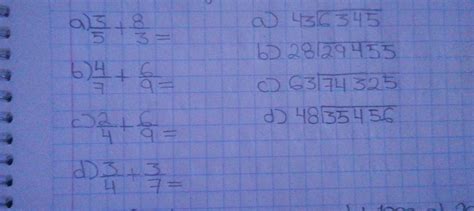 a) 3/5 + 8/3 =
b) 4/7 + 6/9 =
c) 2/4 + 6/9 =
d) 3/4 + 3/7 =
a) 43⟌6345
b) 28⟌29455
c) 63⟌74325
d) 48⟌35456